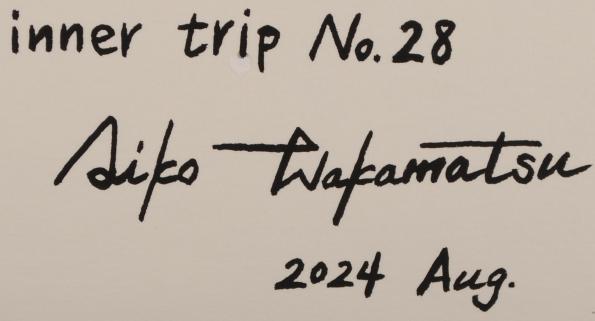 inner trip No. 28
Aiko Wakamatsu
2024 Aug.